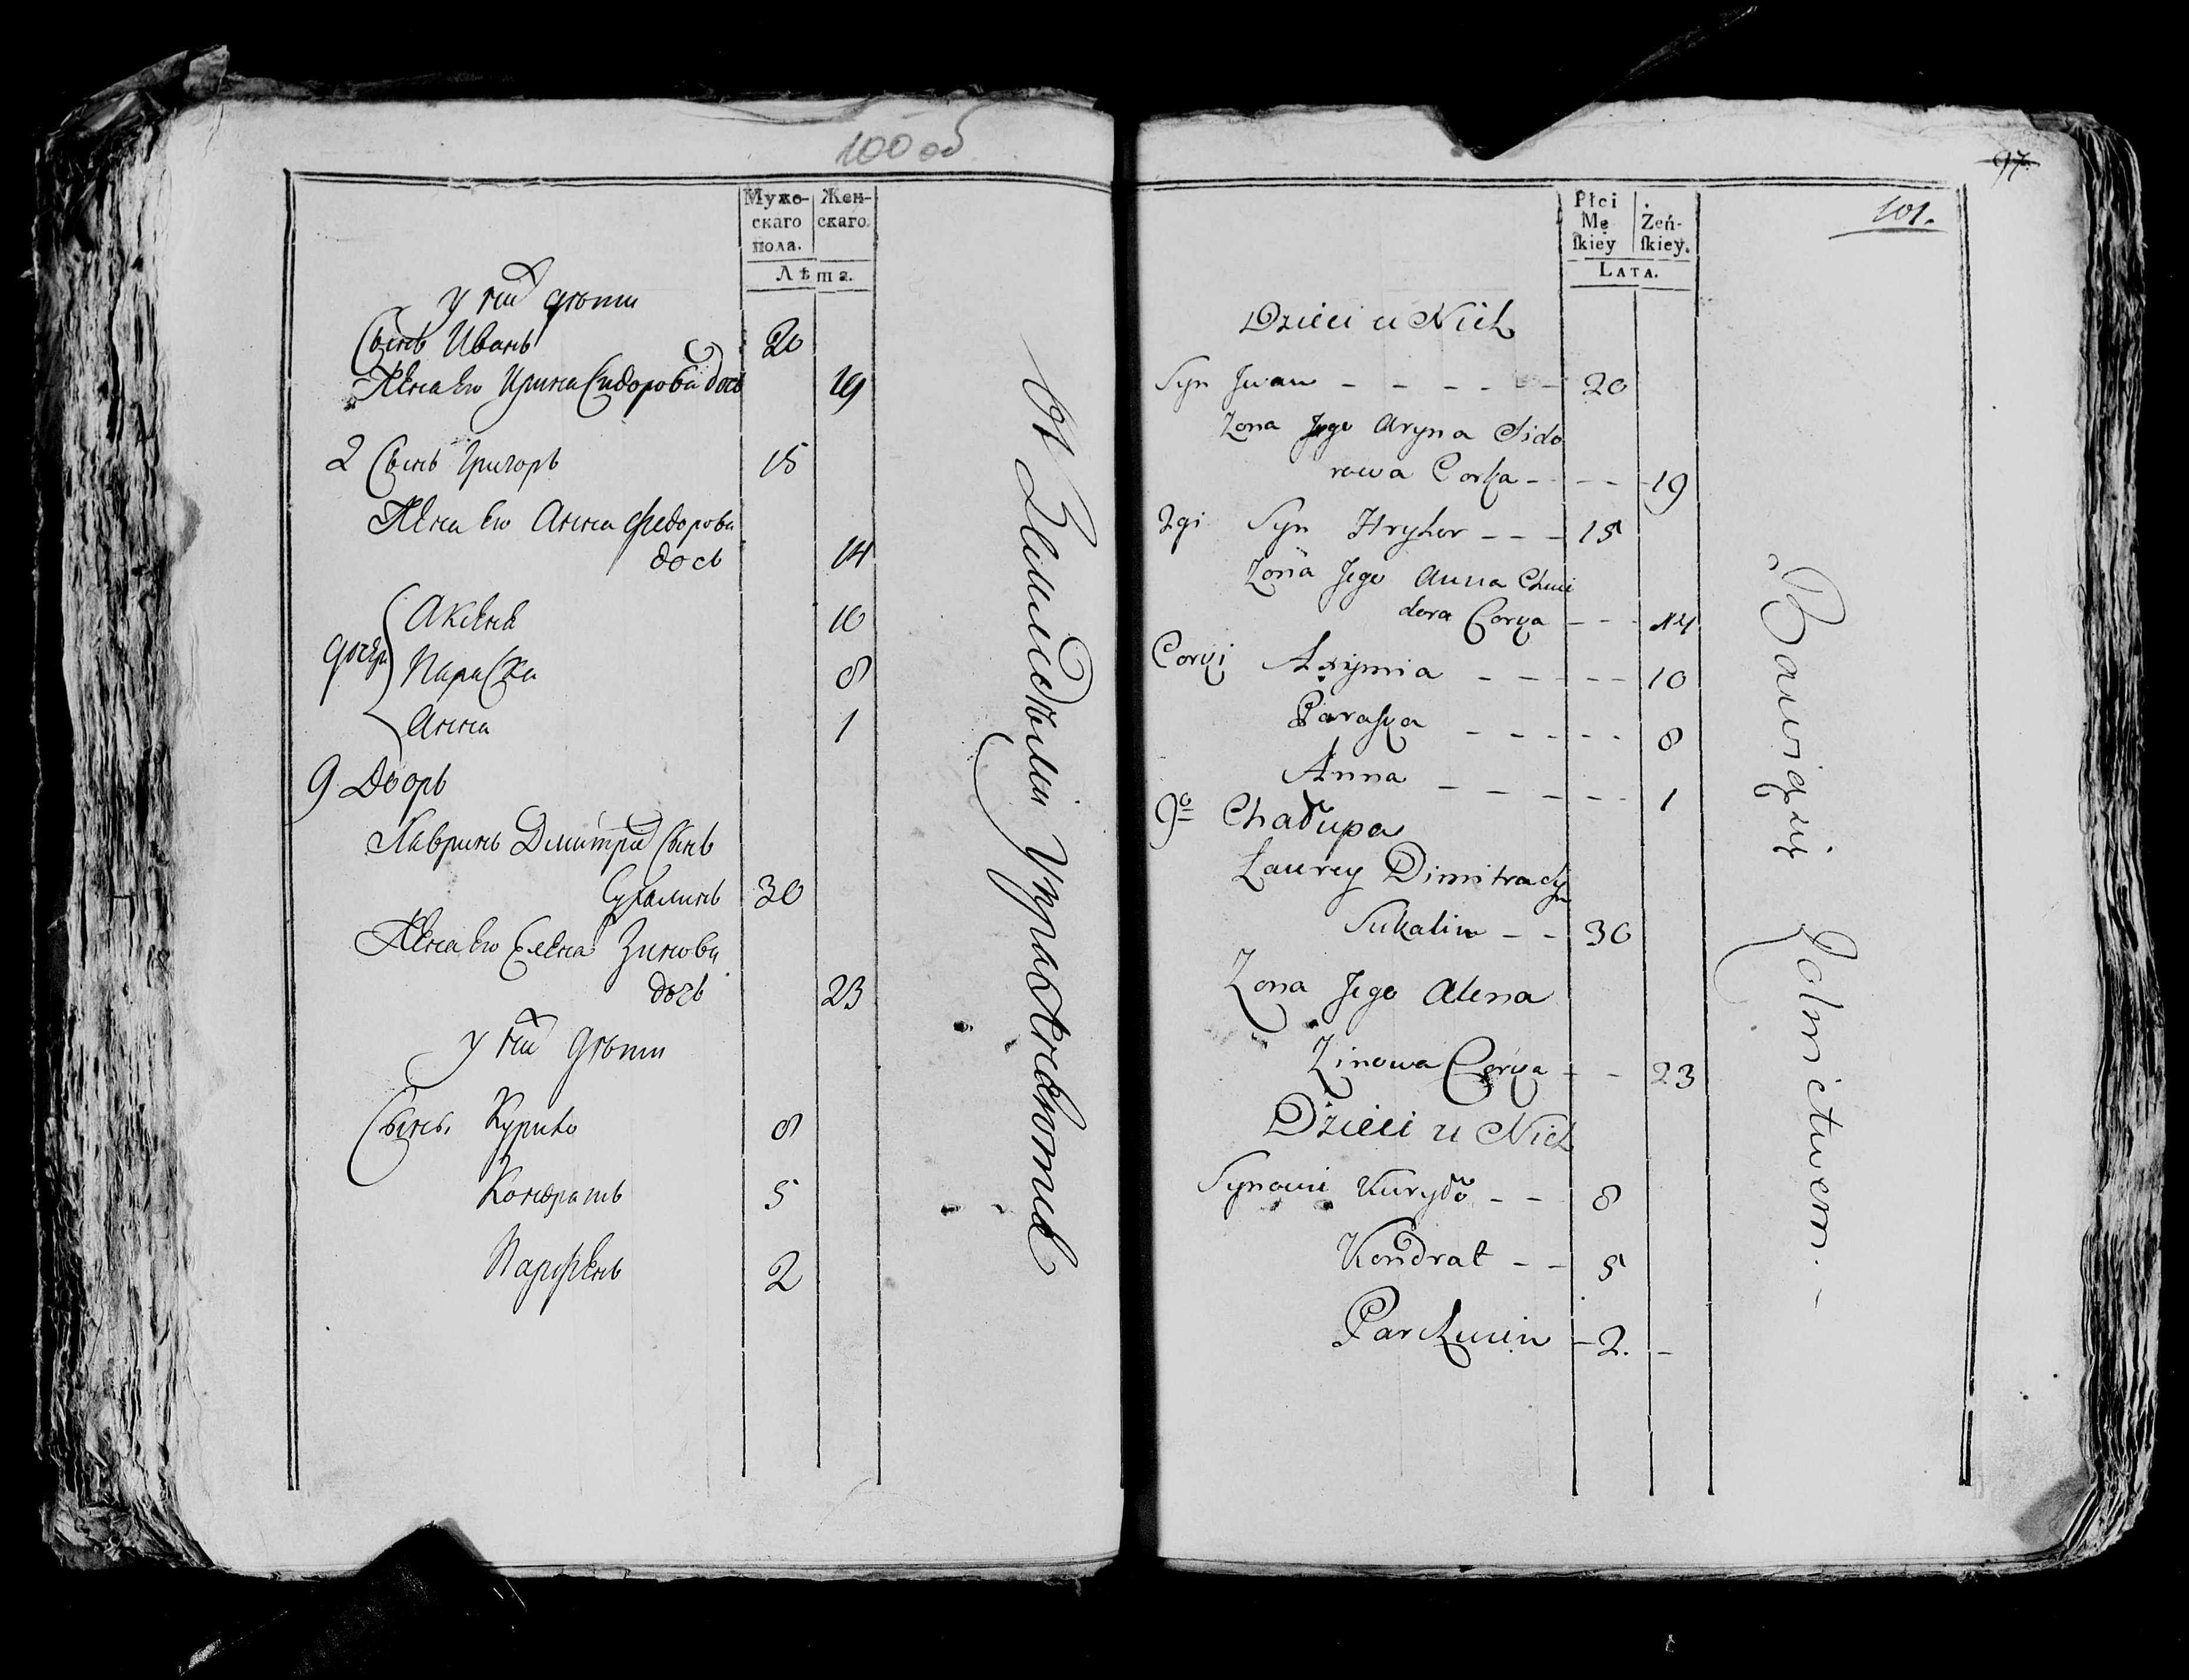 100 об
Муже-
скаго
пола.
Жен-
скаго.
Лѣта.
у них дѣти
Сынъ Иванъ 20
Жена Его Ирина Сидорова дочь 19
2 Сынъ Григоръ 15
Жена Его Анна Федорова
дочь 14
дочери
Аксена 10
Параска 8
Анна 1
9 Дворъ
Лавринъ Дмитрiев Сынъ
Сукалинъ 30
Жена Его Елена Зинова
дочь 23
у них дѣти
Сынъ. Курило 8
Кондратъ 5
Парфенъ 2
Земледѣлiем Упражняются
97.
101.
Płci
Mę
ſkiey
Żeń-
ſkiey.
LATA.
Dzieci u Nich
Syn Jwan - - - - - 20
Zona Jego Aryna Sido
rowa Corka - - - 19
2gi Syn Hryhor - - - 15
Zona Jego Anna Chwie
dora Corka - - - 14
Corki Axymia - - - - - 10
Paraska - - - - - 8
Anna - - - - - 1
9º Chałupa
Laurey Dimitra Syn
Sukalin - - 30
Zona Jego Alena
Zinowa Corka - - 23
Dzieci u Nich
Synowie Kuryło - - 8
Kondrat - - 5
Parchwin - 2. -
Bawią się Rolnictwem. -